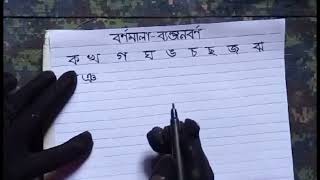 বর্ণমালা-ব্যঞ্জনবর্ণ
ক খ গ ঘ ঙ চ ছ জ ঝ
ঞ